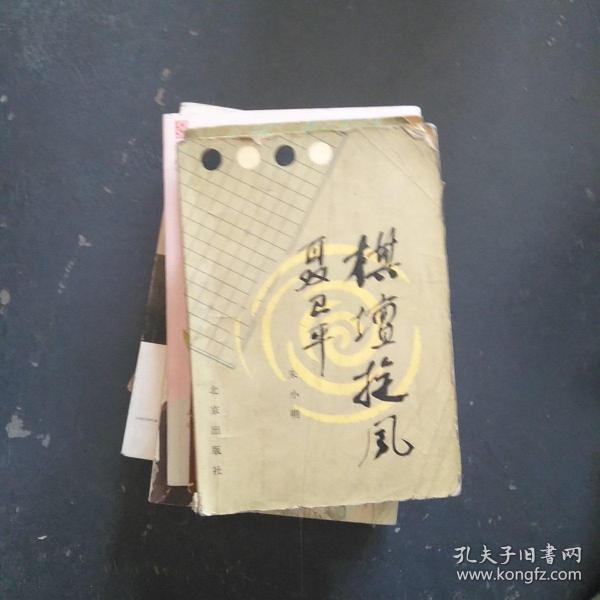 棋壇旋风
聂卫平
朱小明
北京出版社
孔夫子旧书网
www.kongfz.com